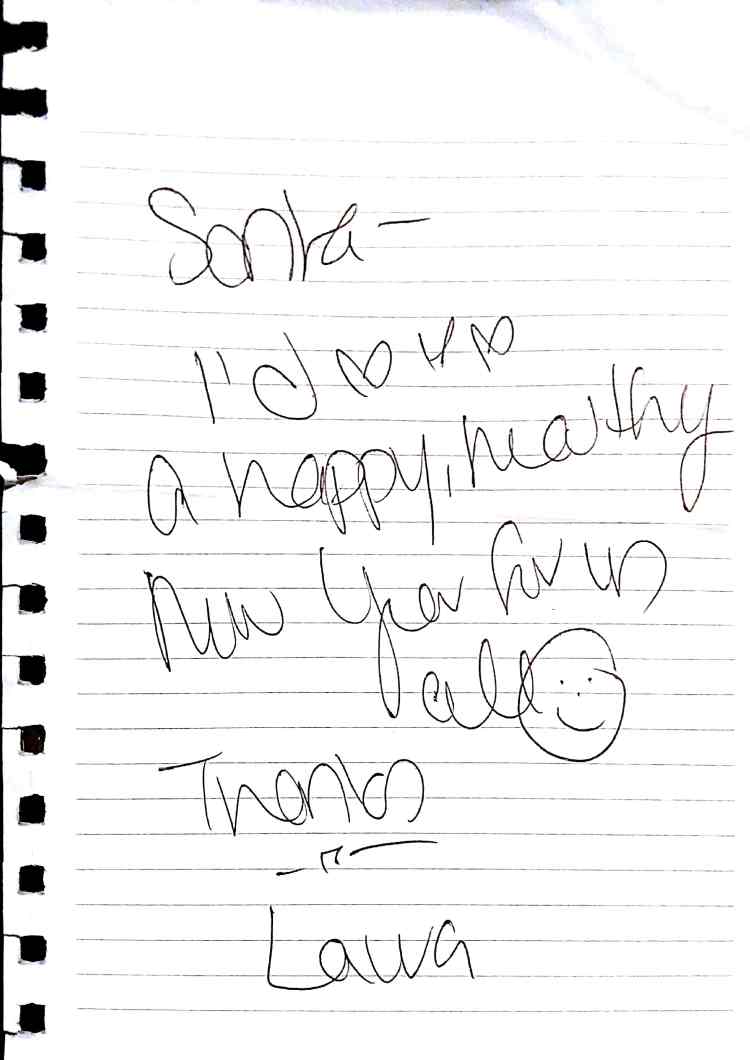 Santa -
I'd ♡ ♡
a happy, healthy
New Year for us
all ☺
Thanks
Laura